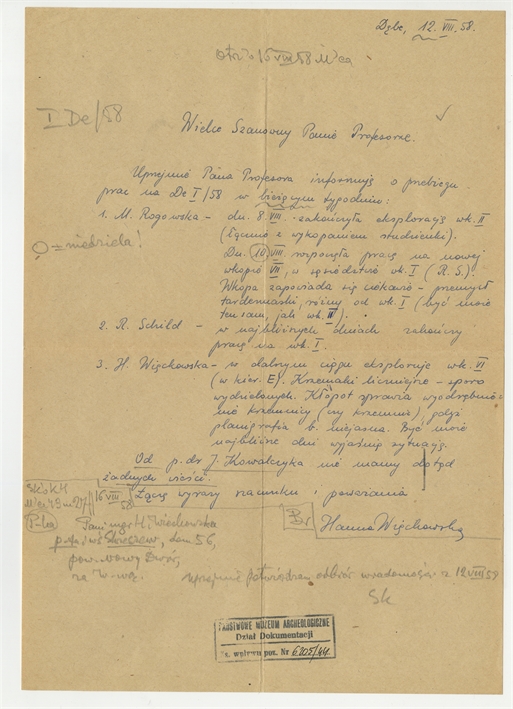 Dębe, 12. VIII. 58.
I De/58
Wielce Szanowny Panie Profesorze.
Uprzejmie Pana Profesora informuję o przebiegu
prac na De I/58 w bieżącym tygodniu:
1. M. Rogowska – dn. 8.VIII. zakończyła eksplorację wk. II
(łącznie z wykopaniem studzienki).
O = niedziela!
Dn. 10 VIII rozpoczęła pracę na nowej
wkopie VII, w sąsiedztwie wk. I (R. S.).
Wkopa zapowiada się ciekawie – przemysł
tardenuaski, różny od wk. I (być może
ten sam, jak wk. II).
2. R. Schild – w najbliższych dniach zakończy
pracę na wk. I.
3. H. Więckowska – w dalszym ciągu eksploruje wk. VI
(w kier. E). Krzemaki liczniejsze – sporo
wydzielonych. Kłopot sprawia wyodrębnie-
nie krzemnicy (czy krzemnic), gdyż
planigrafia b. niejasna. Być może
najbliższe dni wyjaśnią sytuację.
Od p. dr J. Kowalczyka nie mamy dotąd
żadnych wieści.
Łączę wyrazy szacunku i poważania
Hanna Więckowska
16 VIII 58
Pani mgr H. Więckowska
dom 56,
pow. Nowy Dwór,
uprzejmie potwierdzam odbiór wiadomości z 12 VIII 58
Sk
PAŃSTWOWE MUZEUM ARCHEOLOGICZNE
Dział Dokumentacji
wpływu poz. Nr 6205/44